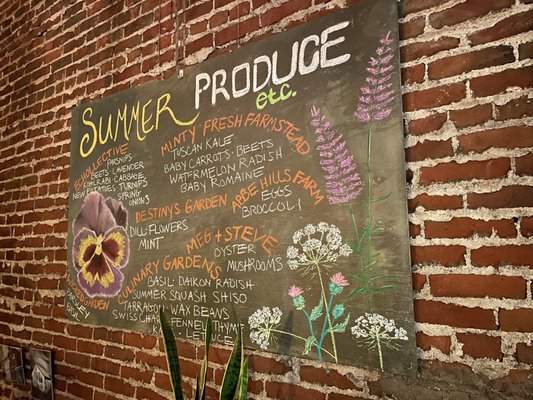 SUMMER PRODUCE
etc.
PARSNIPS
BEETS LAVENDER
KOHLRABI CABBAGE
NEW POTATOES TURNIPS
SPRING
ONIONS
MINTY FRESH FARMSTEAD
TUSCAN KALE
BABY CARROTS · BEETS
WATERMELON RADISH
BABY ROMAINE
DESTINY'S GARDEN
DILL FLOWERS
MINT
ABBE HILLS FARM
EGGS
BROCCOLI
MEG + STEVE
OYSTER
MUSHROOMS
CULINARY GARDENS
BASIL DAIKON RADISH
SUMMER SQUASH SHISO
TARRAGON WAX BEANS
SWISS CHARD FENNEL THYME
LETTUCE
GARDEN
PARSLEY